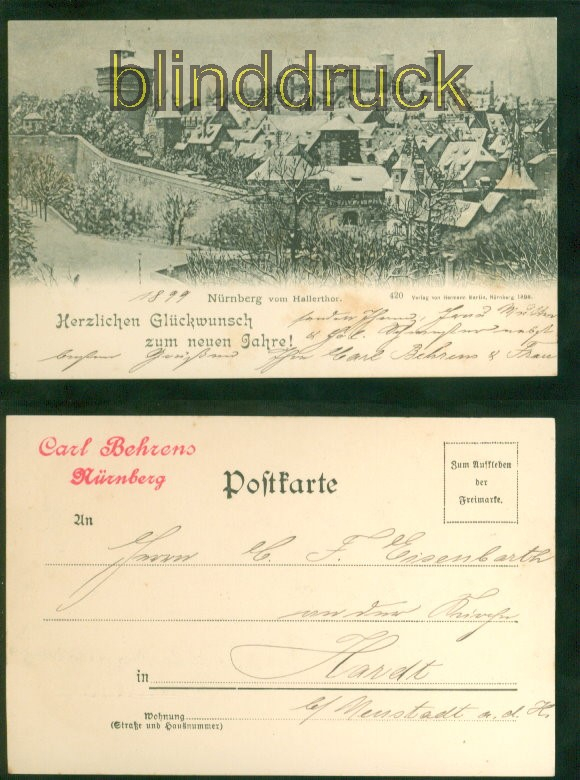 blinddruck
1899
Nürnberg vom Hallerthor.
420 Verlag von Hermann Berlin, Nürnberg 1898.
Herzlichen Glückwunsch
zum neuen Jahre!
senden Ihnen, Mutter
&
Ihr Carl Behrens & Frau
Carl Behrens
Nürnberg
Postkarte
Zum Aufkleben
der
Freimarke.
An
Herrn C. F. Eisenbarth
an der Kirche
in Hardt
b/ Neustadt a. d. H.
Wohnung
(Straße und Hausnummer)